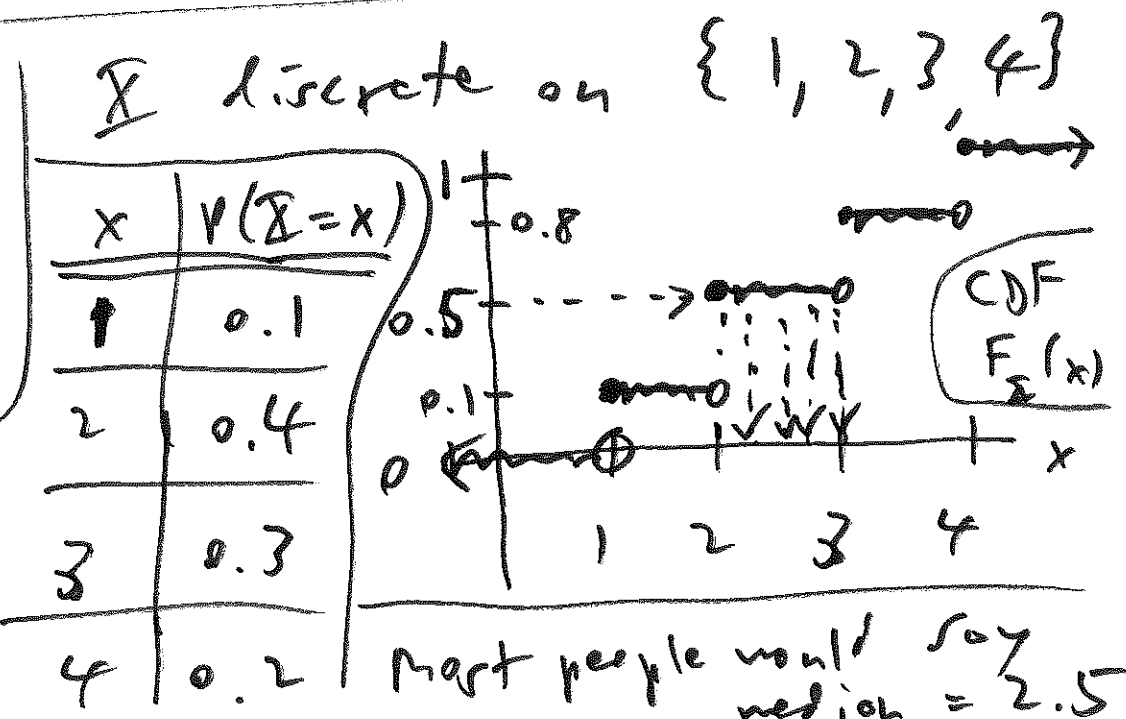 X discrete on {1, 2, 3, 4}
x P(X=x)
1 0.1
2 0.4
3 0.3
4 0.2
1
0.8
0.5
0.1
0
1 2 3 4
x
CDF
F_X(x)
Most people would say
median = 2.5